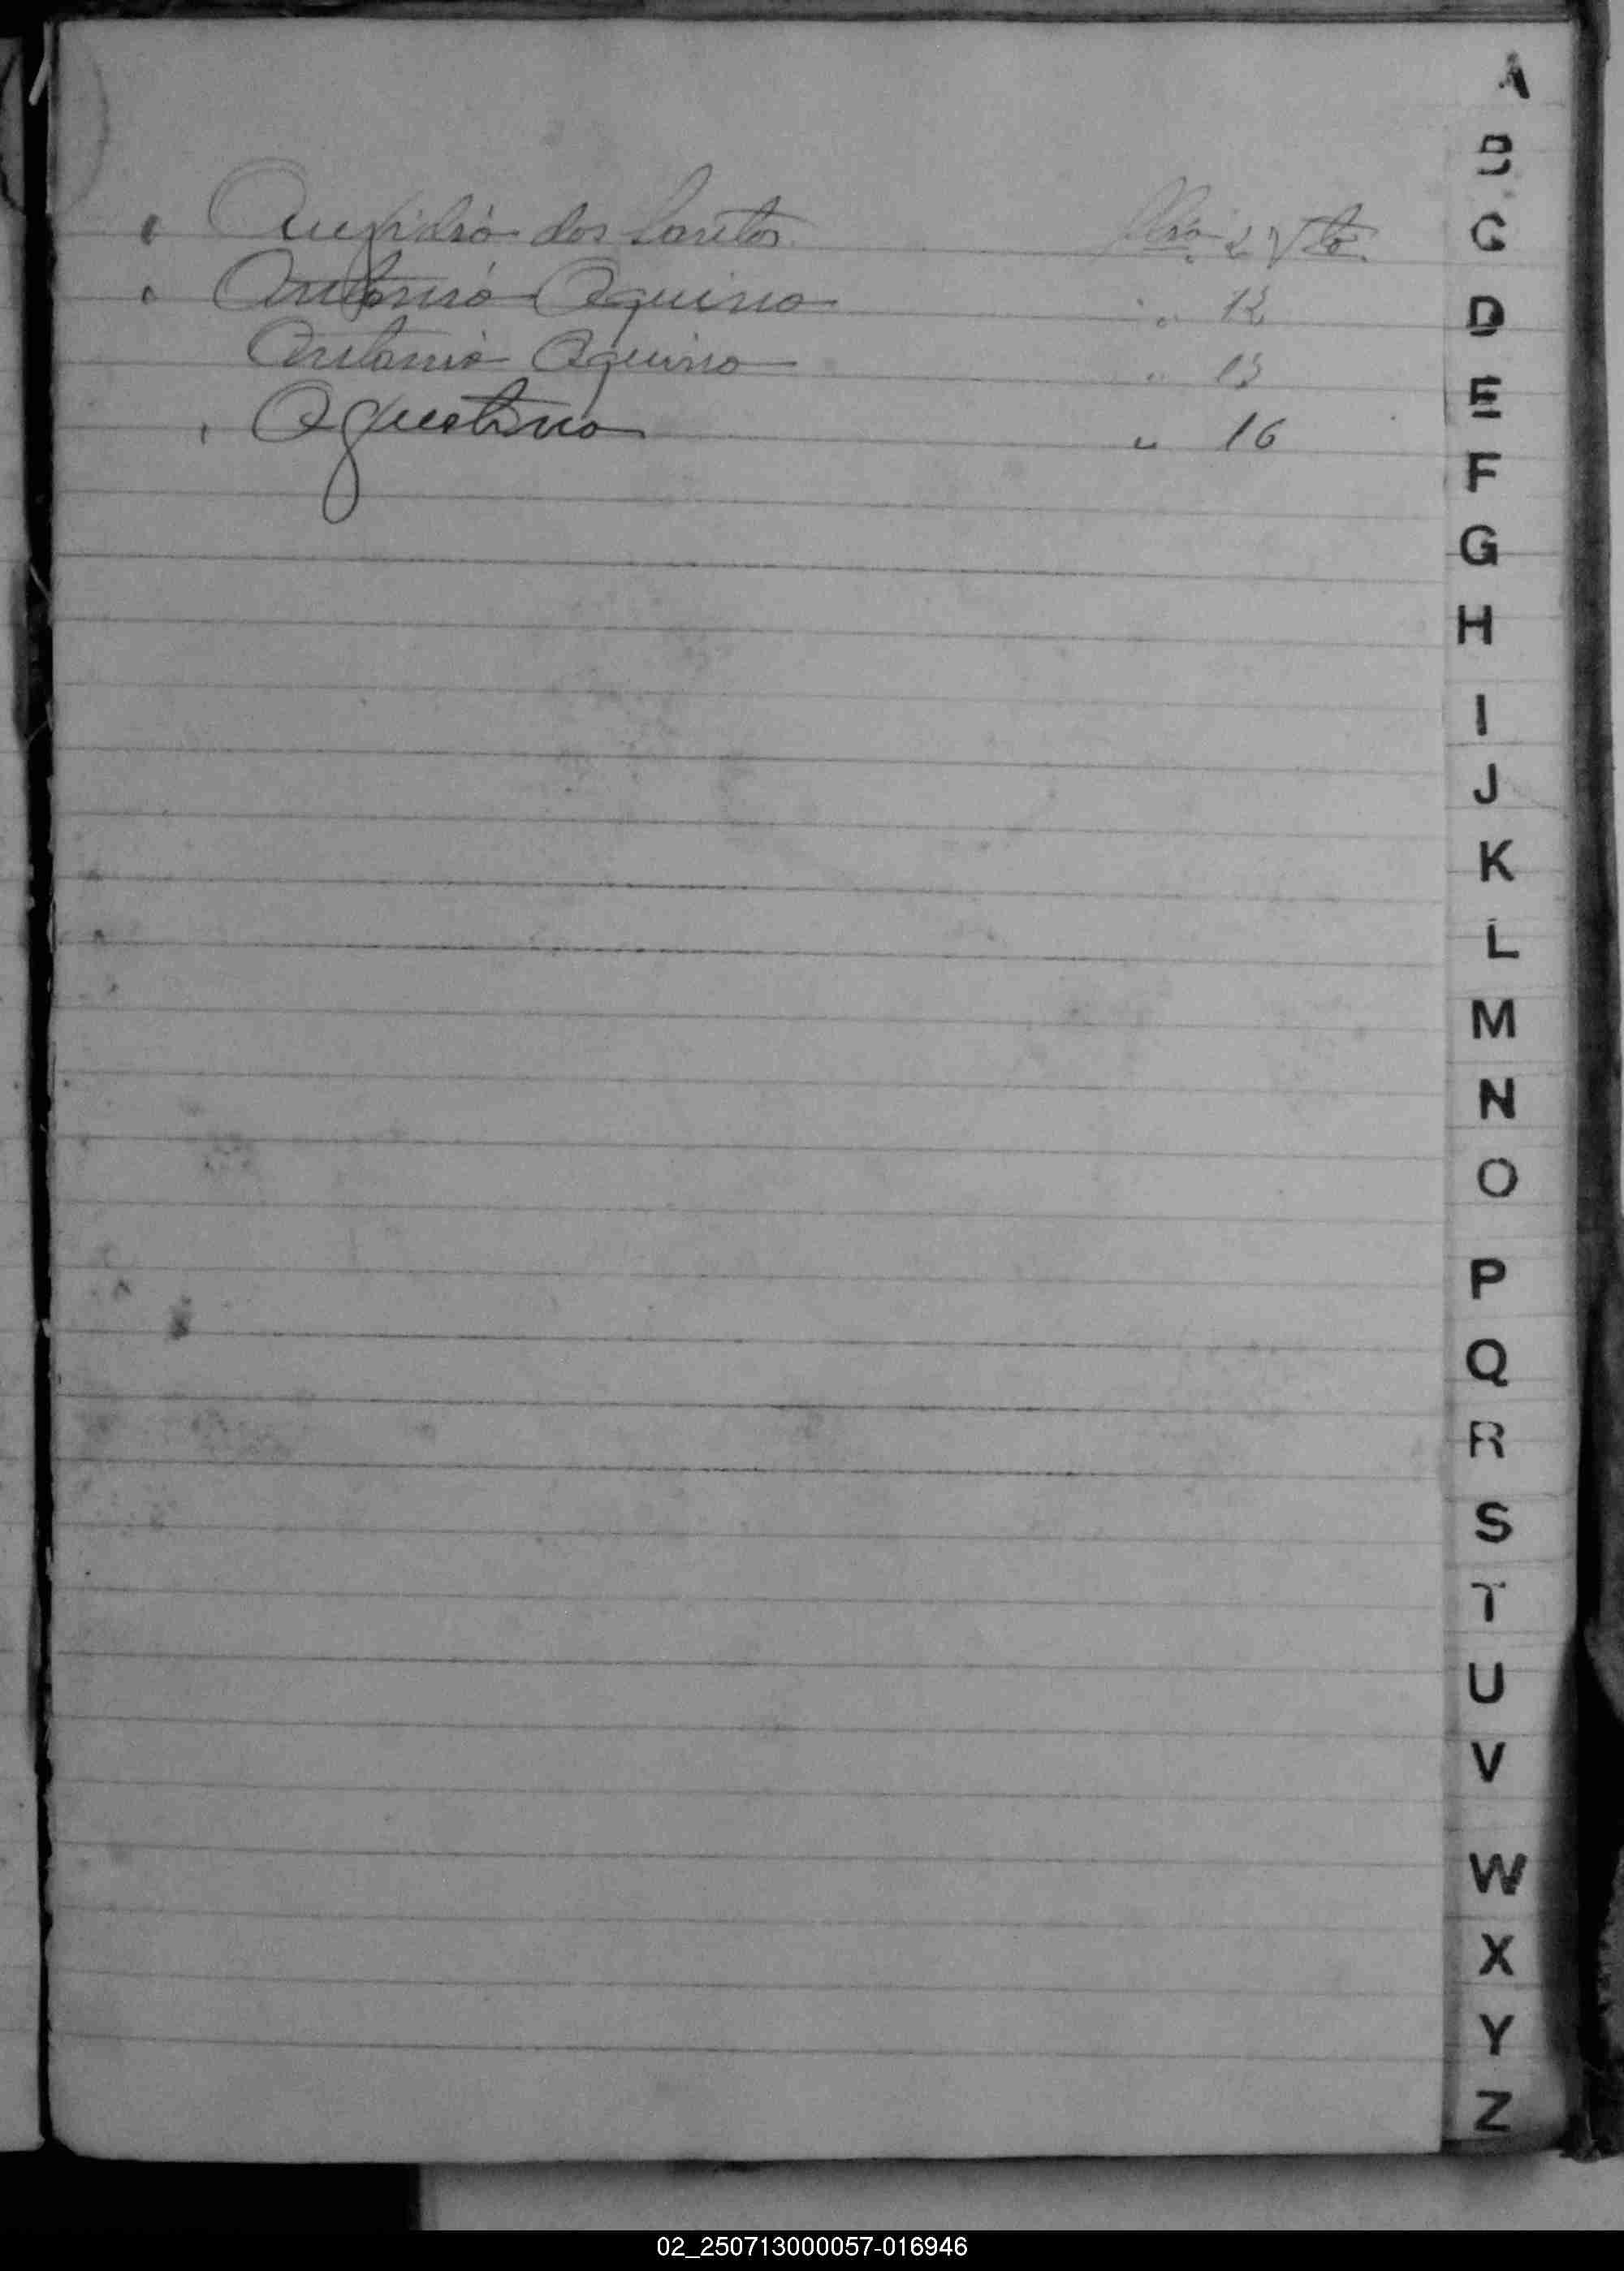 dos Santos 2 Vto.
Antonio Aquino " 12
Antonio Aquino " 13
Agustino " 16
A
B
C
D
E
F
G
H
I
J
K
L
M
N
O
P
Q
R
S
T
U
V
W
X
Y
Z
02_250713000057-016946